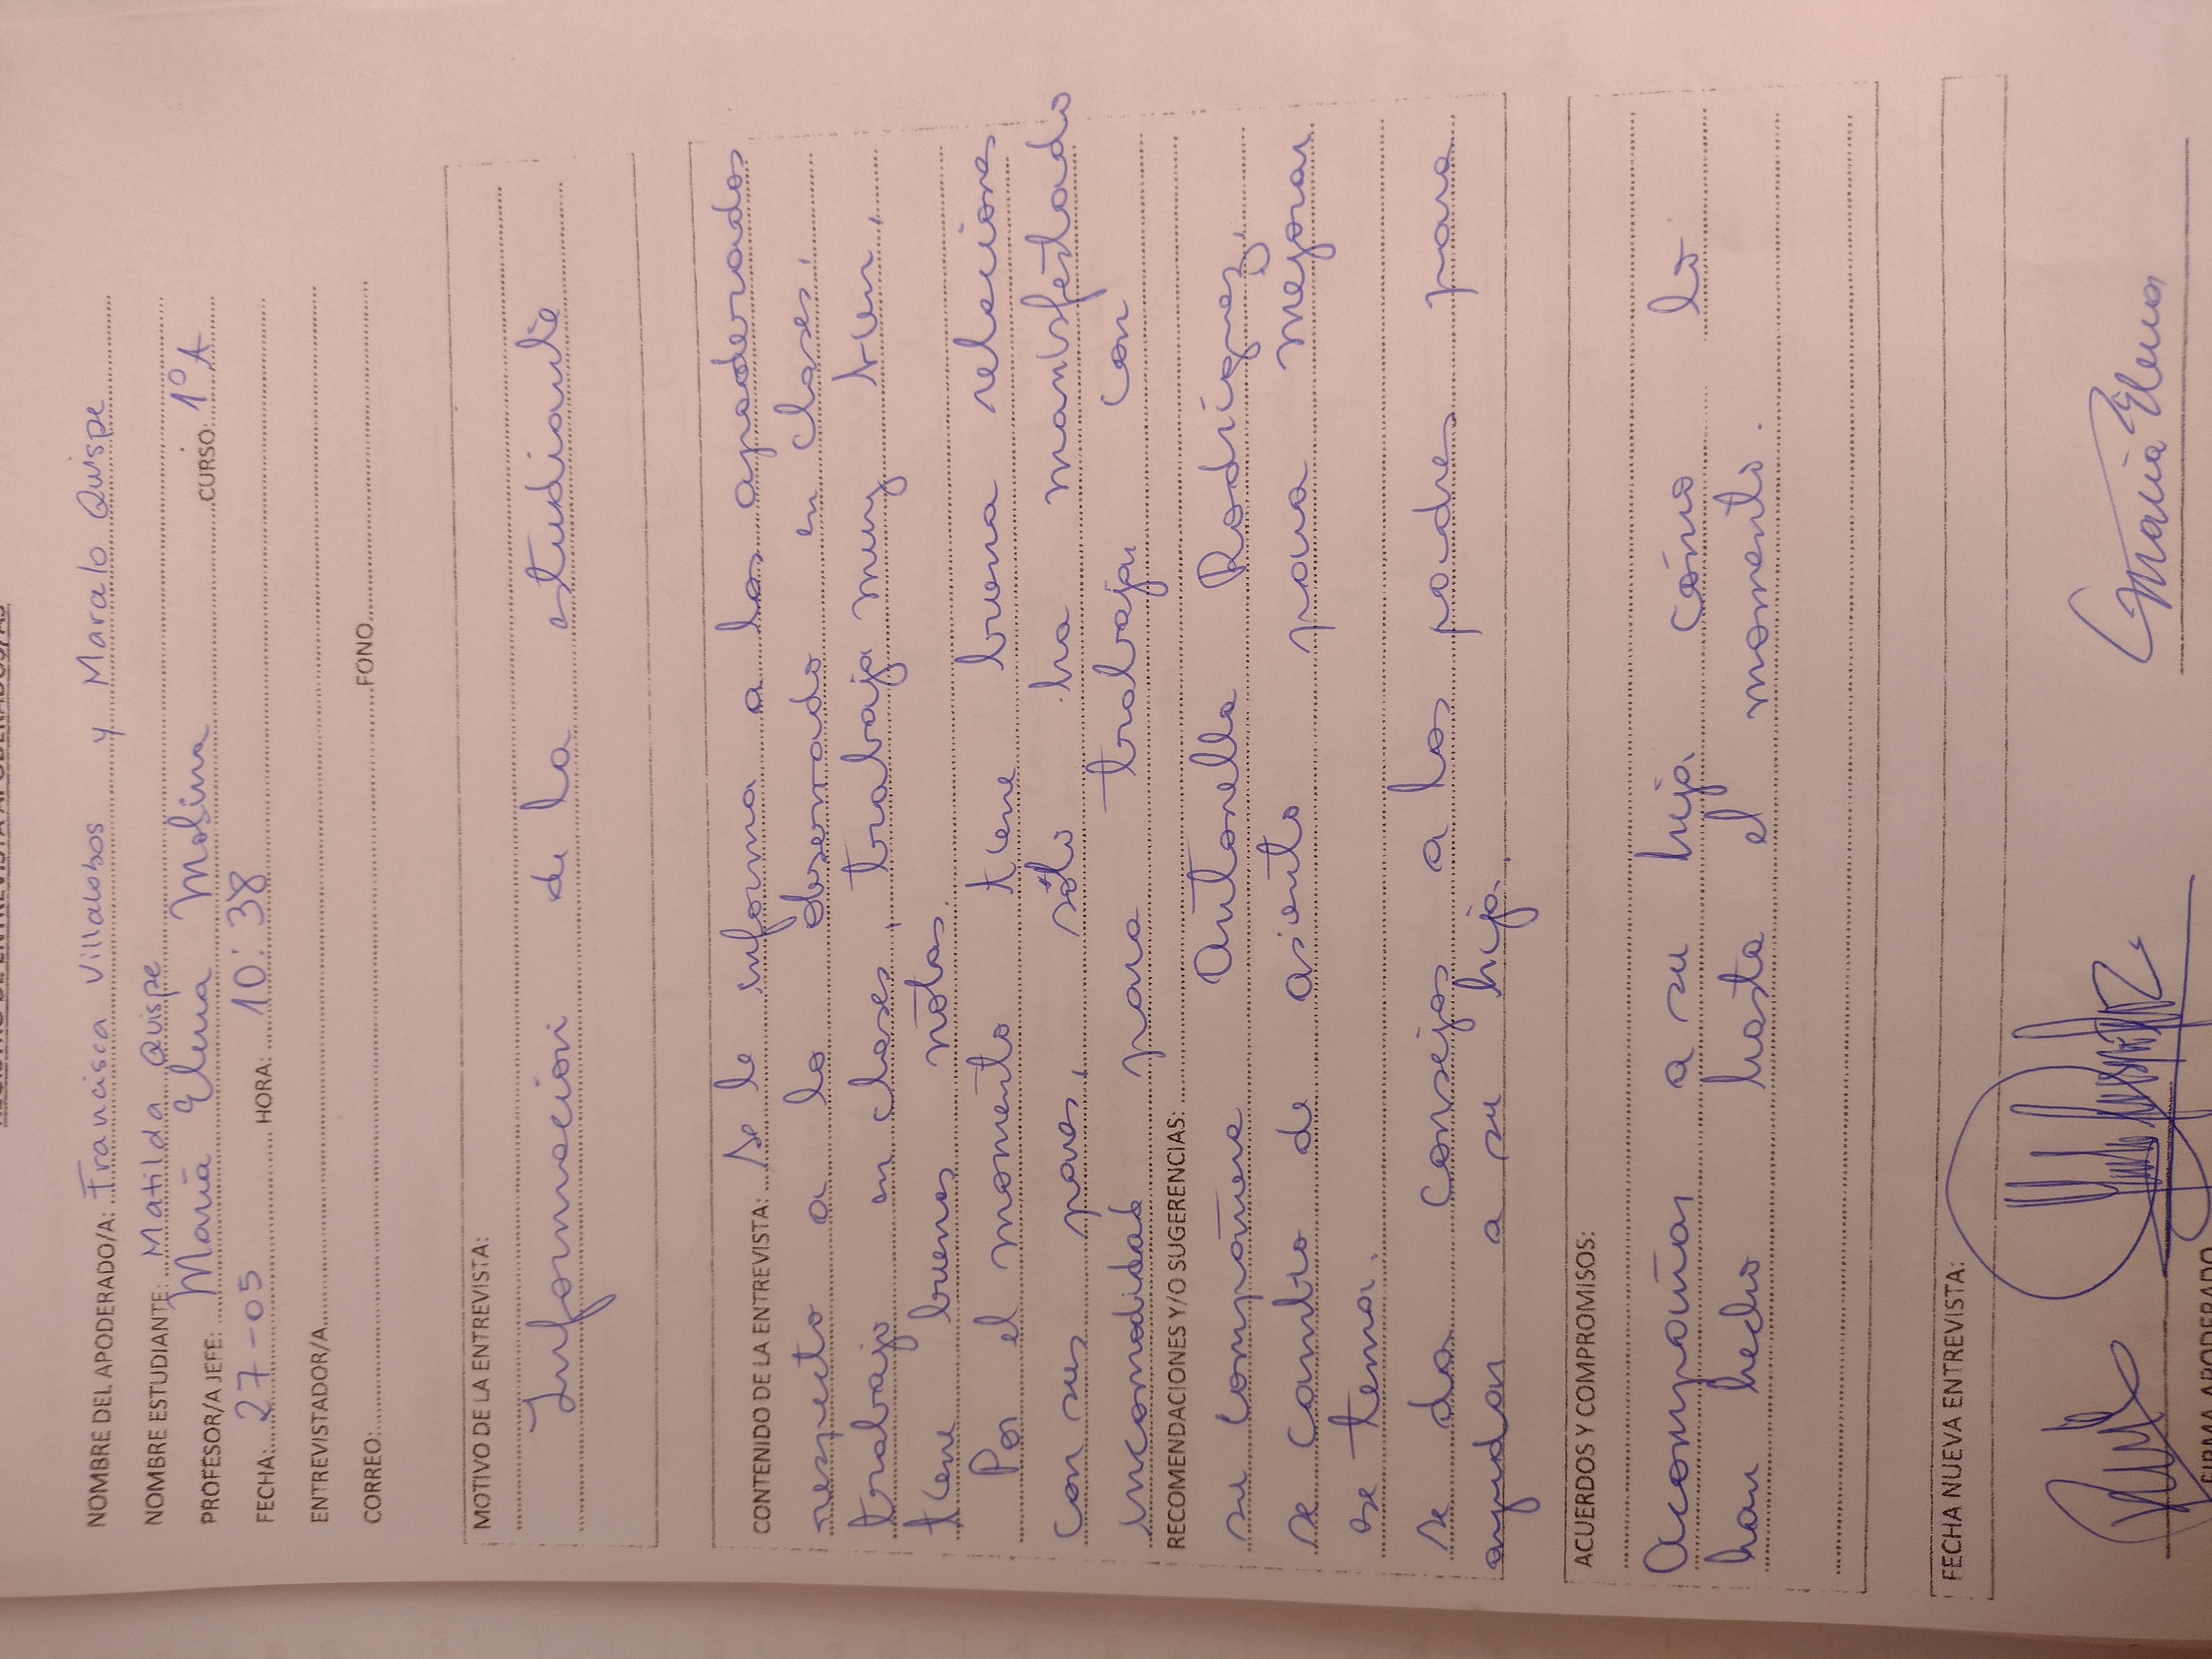 REGISTRO DE ENTREVISTA APODERADOS/AS
NOMBRE DEL APODERADO/A: Francisca Villalobos y Maralo Quispe
NOMBRE ESTUDIANTE: Matilda Quispe
PROFESOR/A JEFE: María Elena Molina CURSO: 1° A
FECHA: 27-05 HORA: 10:38
ENTREVISTADOR/A
CORREO: FONO
MOTIVO DE LA ENTREVISTA:
Información de la estudiante
CONTENIDO DE LA ENTREVISTA: Se le informa a los apoderados
respecto a lo observado en clases,
trabajo en clases, trabaja muy bien,
tiene buenas notas.
Por el momento tiene buena relaciones
con sus pares, sólo ha manisfestado
incomodidad para trabajar con
RECOMENDACIONES Y/O SUGERENCIAS:
su compañera Antonella Rodríguez,
se cambio de asiento para mejorar
ese tema.
se da consejos a los padres para
ayudar a su hija.
ACUERDOS Y COMPROMISOS:
Acompañar a su hija cómo lo
han hecho hasta el momento.
FECHA NUEVA ENTREVISTA:
María Elena
FIRMA APODERADO